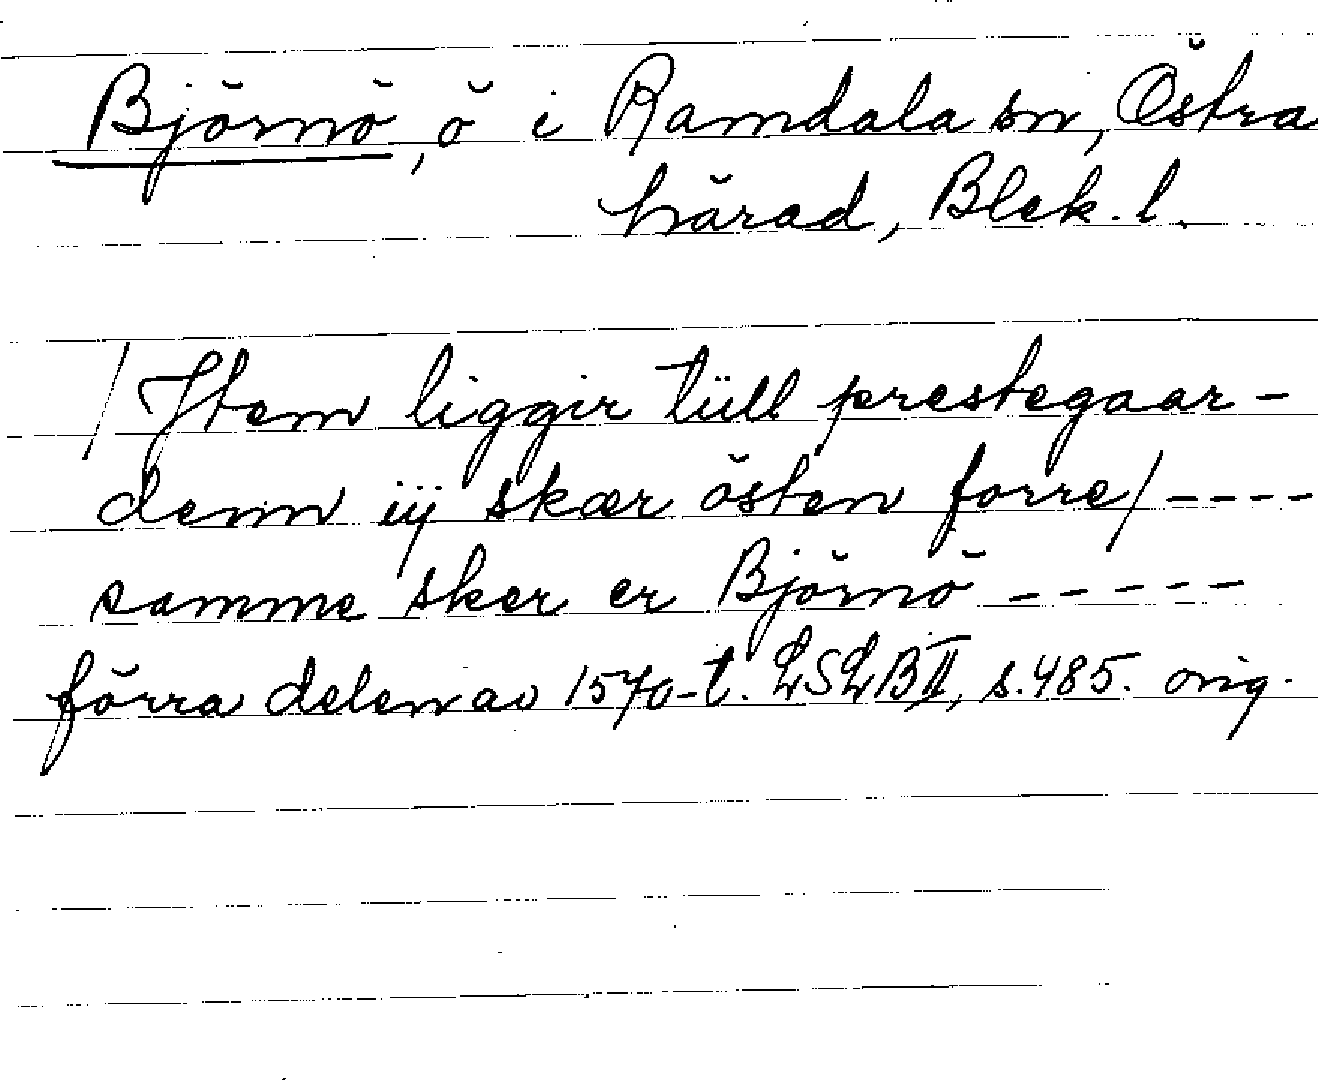 Björnö, ö i Ramdala sn, Östra
härad, Blek. l.
/Jtem liggir tüll prestegaar-
denn iij skær östen forre/----
samme sker er Björnö -----
förra delen av 1570-t. LSLB II, s. 485. orig.